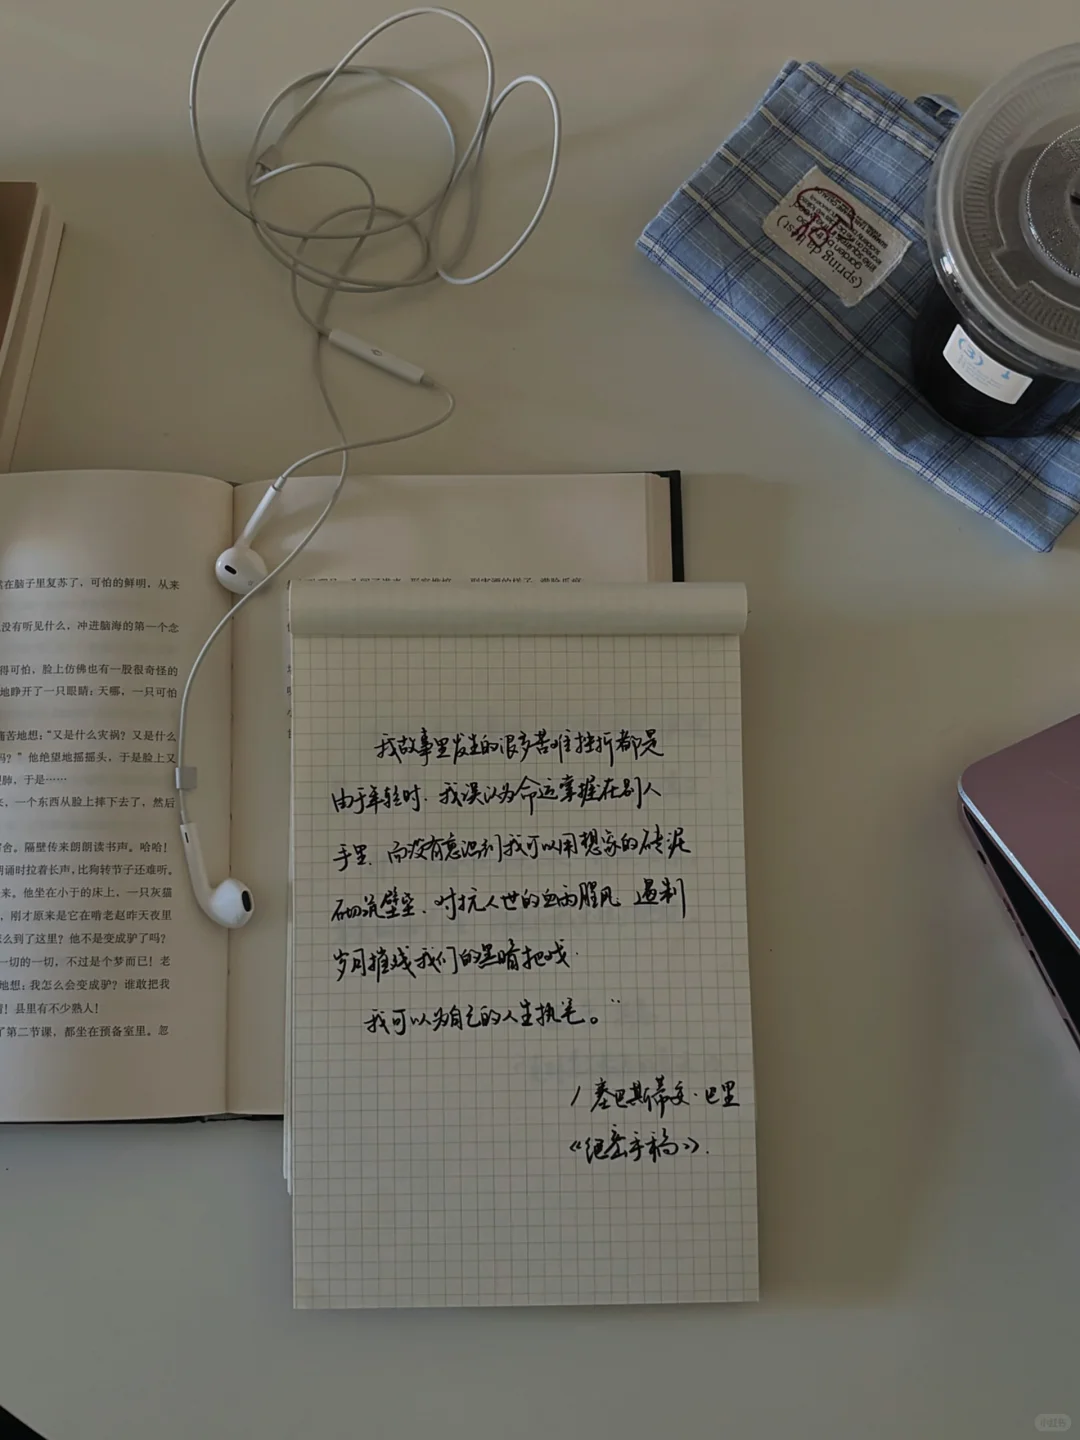 然在脑子里复苏了，可怕的鲜明，从来
没有听见什么，冲进脑海的第一个念
得可怕，脸上仿佛也有一股很奇怪的
地睁开了一只眼睛：天哪，一只可怕
痛苦地想：“又是什么灾祸？又是什么
吗？”他绝望地摇摇头，于是脸上又
肺，于是……
来，一个东西从脸上摔下去了，然后
宿舍。隔壁传来朗朗读书声。哈哈！
朗诵时拉着长声，比狗转节子还难听。
来。他坐在小于的床上，一只灰猫
，刚才原来是它在啃老赵昨天夜里
怎么到了这里？他不是变成驴了吗？
一切的一切，不过是个梦而已！老
地想：我怎么会变成驴？谁敢把我
！县里有不少熟人！
了第二节课，都坐在预备室里。忽
我故事里发生的很多苦难挫折都是
由于年轻时，我误认为命运掌握在别人
手里，而没有意识到我可以用想象的砖泥
砌筑壁垒，对抗人世的血雨腥风，遏制
岁月摧残我们的黑暗把戏。
我可以为自己的人生执笔。”
/ 塞巴斯蒂安·巴里
《绝密手稿》.
(spring da
(3) 1
小红书